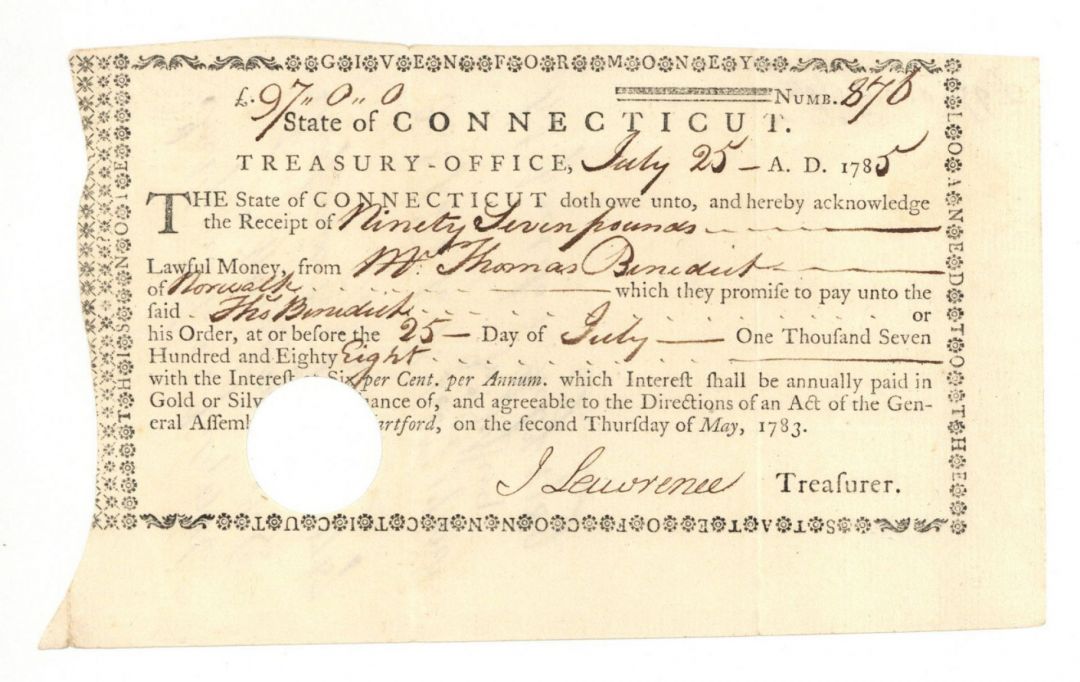 THIS NOTE
GIVEN FOR MONEY
LOANED TO THE
STATE OF CONNECTICUT
£. 97,, 0,, 0 NUMB. 876
State of CONNECTICUT.
TREASURY-OFFICE, July 25 — A. D. 1785
THE State of CONNECTICUT doth owe unto, and hereby acknowledge
the Receipt of Ninety Seven pounds
Lawful Money, from Mr. Thomas Benedict
of Norwalk which they promiſe to pay unto the
ſaid Thos Benedict or
his Order, at or before the 25 — Day of July — One Thouſand Seven
Hundred and Eighty Eight
with the Intereſt at Six per Cent. per Annum. which Intereſt ſhall be annually paid in
Gold or Silv uance of, and agreeable to the Directions of an Act of the Gen-
eral Aſſembl artford, on the ſecond Thurſday of May, 1783.
J Lawrence Treaſurer.